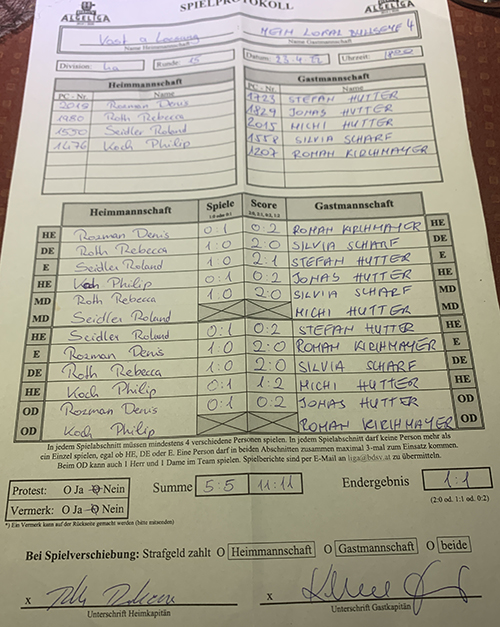 SPIELPROTOKOLL
ALGELIGA ALGELIGA
Vast a
Name Heimmannschaft
MEIN LOKAL 4
Name Gastmannschaft
Division: Runde: 15 Datum: 23.4.22 Uhrzeit:
Heimmannschaft Gastmannschaft
PC - Nr. Name PC - Nr. Name
2019 Rozman Denis 1723 STEFAN HUTTER
1980 Roth Rebecca 1829 JONAS HUTTER
1590 Seidler Roland 2015 MICHI HUTTER
1476 Koch Philip 1558 SILVIA SCHARF
1207 ROMAN KIRCHMAYER
Heimmannschaft Spiele Score Gastmannschaft
1:0 oder 0:1 2:0, 2:1, 0:2, 1:2
HE Rozman Denis 0:1 0:2 ROMAN KIRCHMAYER HE
DE Roth Rebecca 1:0 2:0 SILVIA SCHARF DE
E Seidler Roland 1:0 2:1 STEFAN HUTTER E
HE Koch Philip 0:1 0:2 JONAS HUTTER HE
MD Roth Rebecca 1:0 2:0 SILVIA SCHARF MD
MD Seidler Roland MICHI HUTTER MD
HE Seidler Roland 0:1 0:2 STEFAN HUTTER HE
E Rozman Denis 1:0 2:0 ROMAN KIRCHMAYER E
DE Roth Rebecca 1:0 2:0 SILVIA SCHARF DE
HE Koch Philip 0:1 1:2 MICHI HUTTER HE
OD Rozman Denis 0:1 0:2 JONAS HUTTER OD
OD Koch Philip ROMAN KIRCHMAYER OD
In jedem Spielabschnitt müssen mindestens 4 verschiedene Personen spielen. In jedem Spielabschnitt darf keine Person mehr als
ein Einzel spielen, egal ob HE, DE oder E. Eine Person darf in beiden Abschnitten zusammen maximal 3-mal zum Einsatz kommen.
Beim OD kann auch 1 Herr und 1 Dame im Team spielen. Spielberichte sind per E-Mail an liga@bdsv.at zu übermitteln.
Protest: O Ja O Nein Summe 5:5 11:11 Endergebnis 1:1
Vermerk: O Ja O Nein (2:0 od. 1:1 od. 0:2)
*) Ein Vermerk kann auf der Rückseite gemacht werden (bitte ankreuzen)
Bei Spielverschiebung: Strafgeld zahlt O Heimmannschaft O Gastmannschaft O beide
x x
Unterschrift Heimkapitän Unterschrift Gastkapitän